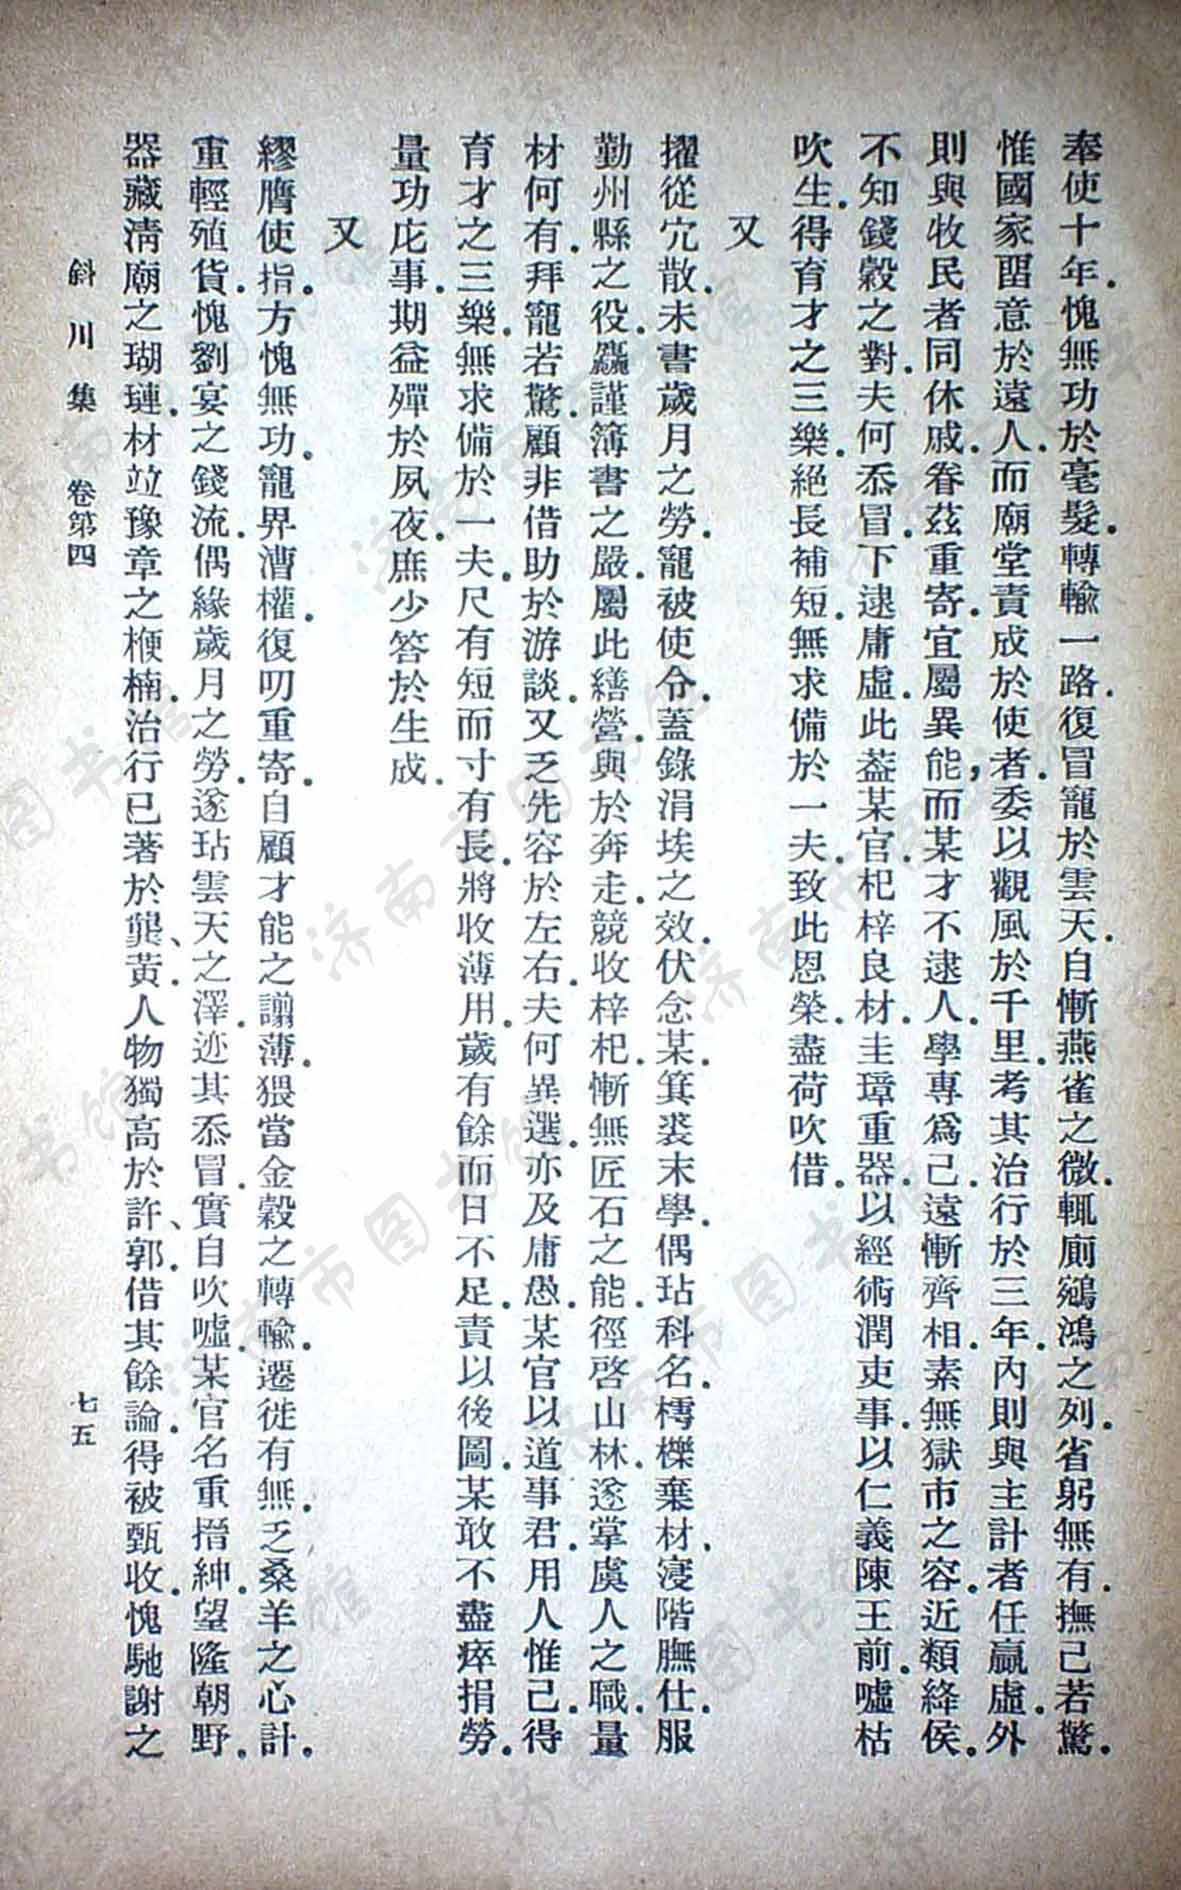 奉使十年。愧無功於毫髮。轉輸一路。復冒寵於雲天。自慚燕雀之微。輒廁鵷鴻之列。省躬無有。撫己若驚。
惟國家畱意於遠人。而廟堂責成於使者。委以觀風於千里。考其治行於三年。內則與主計者任贏虛。外
則與牧民者同休戚。眷茲重寄。宜屬異能，而某才不逮人。學專爲己。遠慚齊相。素無獄市之容。近類絳侯。
不知錢穀之對。夫何忝冒。下逮庸虛。此葢某官。杞梓良材。圭璋重器。以經術潤吏事。以仁義陳王前。噓枯
吹生。得育才之三樂。絕長補短。無求備於一夫。致此恩榮。盡荷吹借。
又
擢從宂散。未書歲月之勞。寵被使令。蓋錄涓埃之效。伏念某。箕裘末學。偶玷科名。樗櫟棄材。寖階膴仕。服
勤州縣之役。麤謹簿書之嚴。屬此繕營。興於奔走。競收梓杞。慚無匠石之能。徑啓山林。遂掌虞人之職。量
材何有。拜寵若驚。顧非借助於游談。又乏先容於左右。夫何異選。亦及庸愚。某官以道事君。用人惟己。得
育才之三樂。無求備於一夫。尺有短而寸有長。將收薄用。歲有餘而日不足。責以後圖。某敢不盡瘁捐勞。
量功庀事。期益殫於夙夜。庶少答於生成。
又
繆膺使指。方愧無功。寵畀漕權。復叨重寄。自顧才能之譾薄。猥當金穀之轉輸。遷徙有無。乏桑羊之心計。
重輕殖貨。愧劉宴之錢流。偶緣歲月之勞。遂玷雲天之澤。迹其忝冒。實自吹噓。某官名重搢紳。望隆朝野。
器藏淸廟之瑚璉。材竝豫章之楩楠。治行已著於龔、黃。人物獨高於許、郭。借其餘論。得被甄收。愧馳謝之
斜川集 卷第四
七五
济南市图书馆